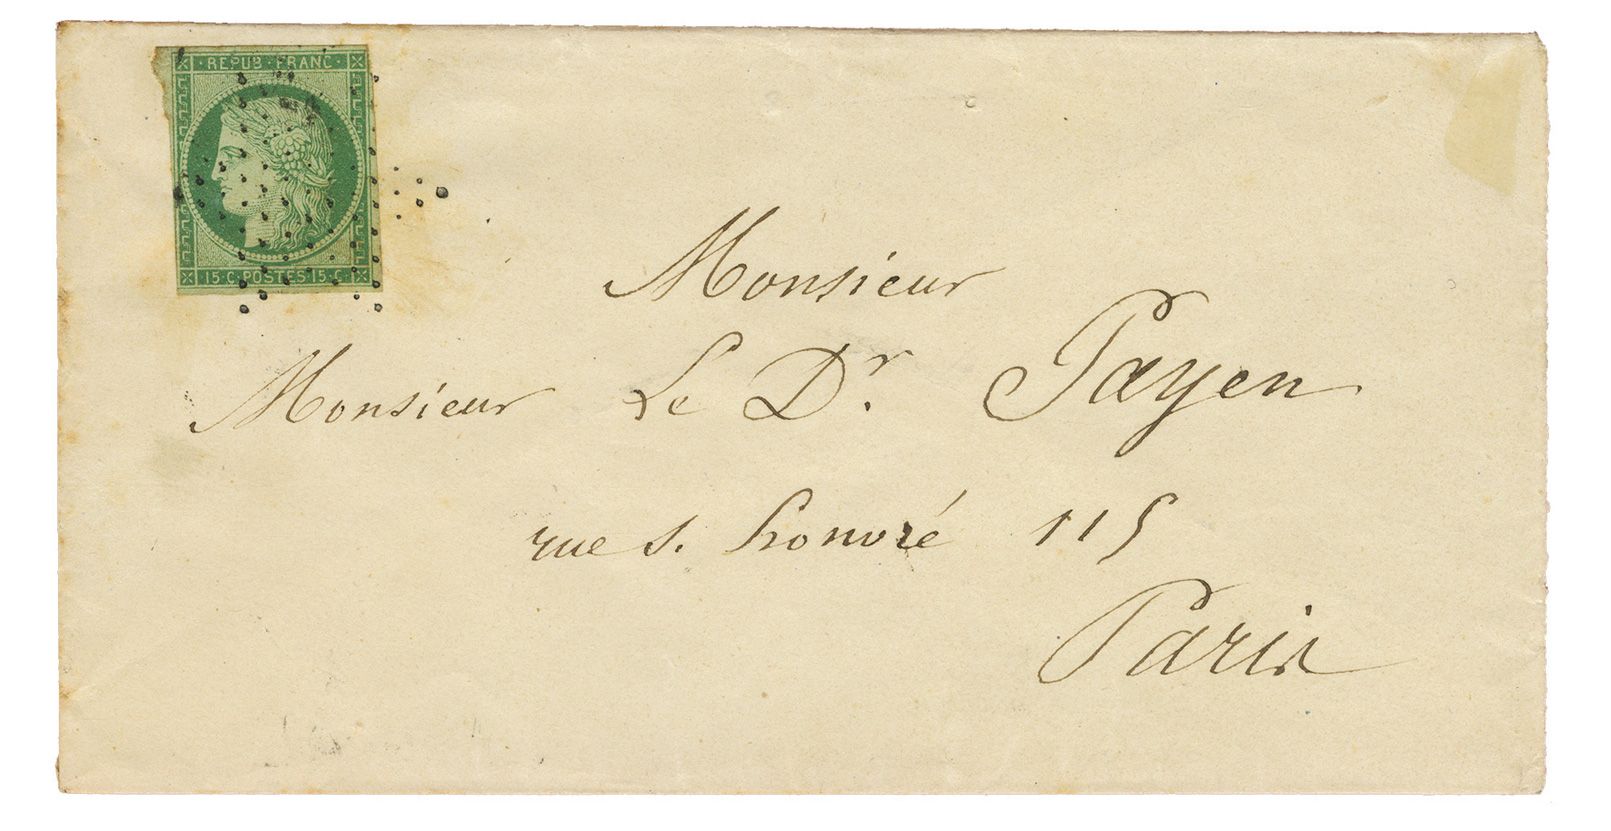 REPUB · FRANC ·
· 15 · C · POSTES · 15 · C ·
Monsieur
Monsieur Le Dr. Payen
rue s. honoré 115
Paris